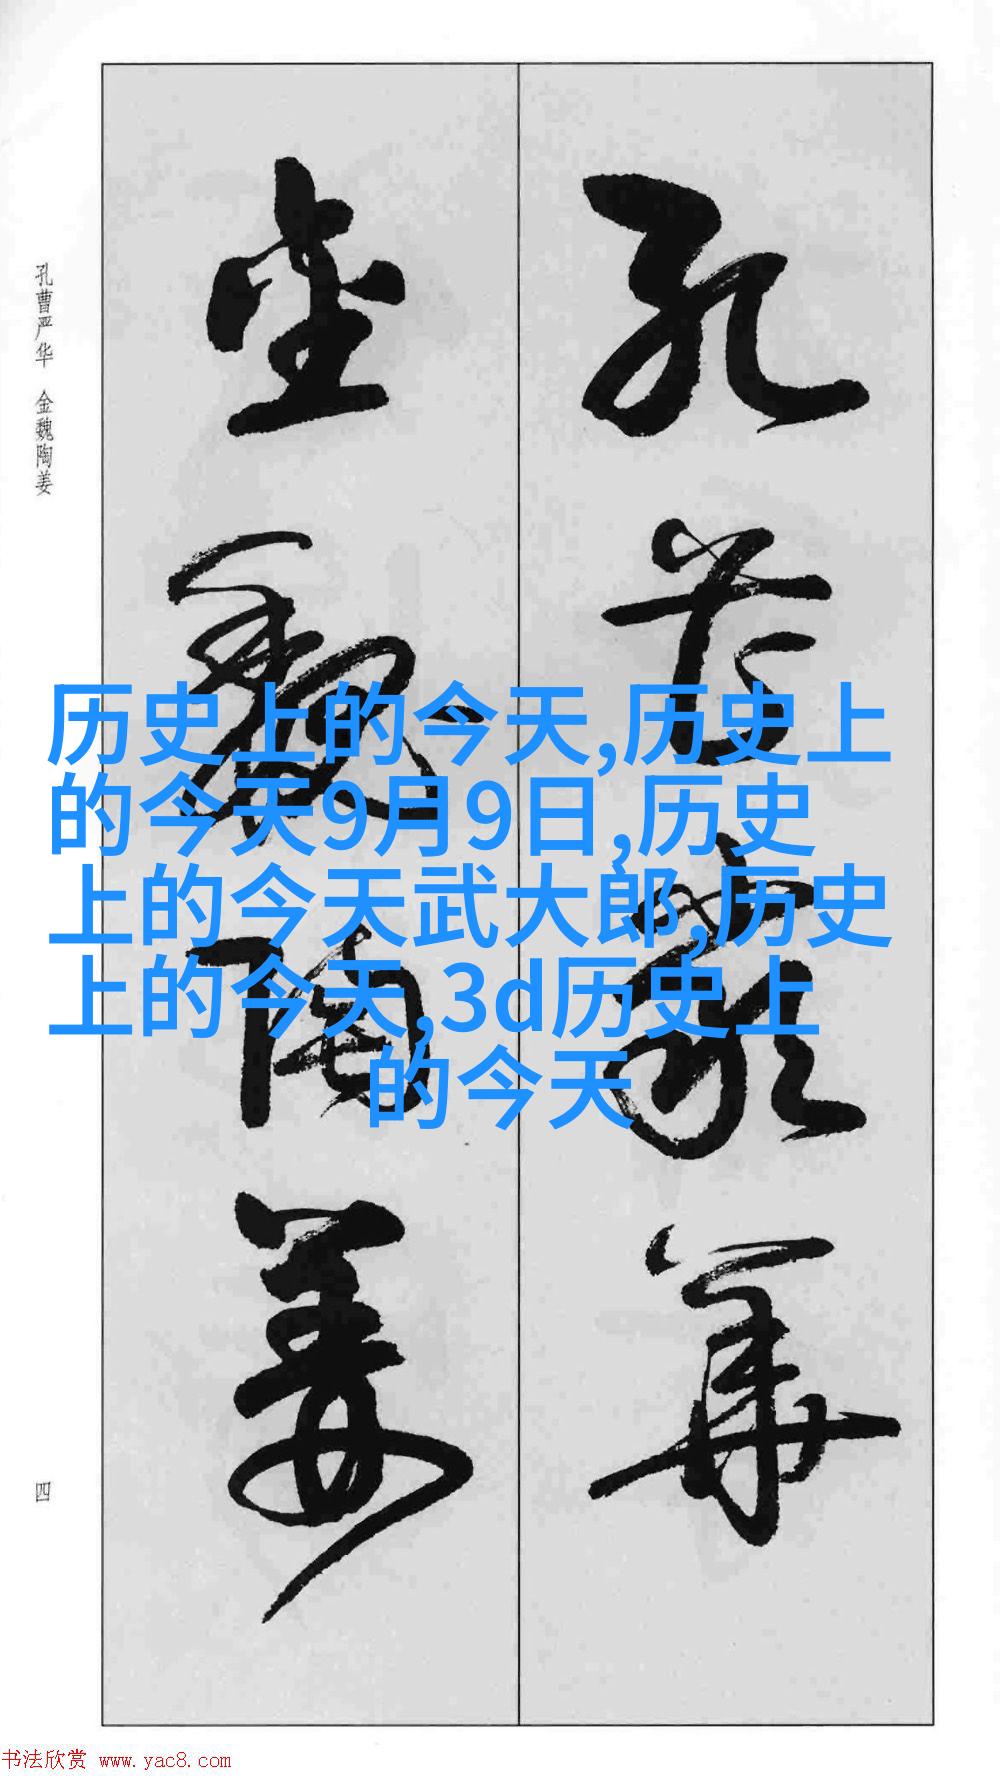 孔曹严华 金魏陶姜
孔曹严华
金魏陶姜
历史上的今天,历史上
的今天9月9日,历史
上的今天武大郎,历史
上的今天,3d历史上
的今天
四
书法欣赏 www.yac8.com